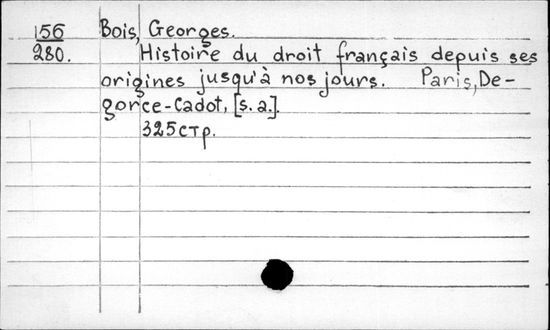 156 Bois, Georges.
280. Histoire du droit français depuis ses
origines jusqu'à nos jours. Paris, De-
gorce-Cadot, [s.a.].
325 стр.